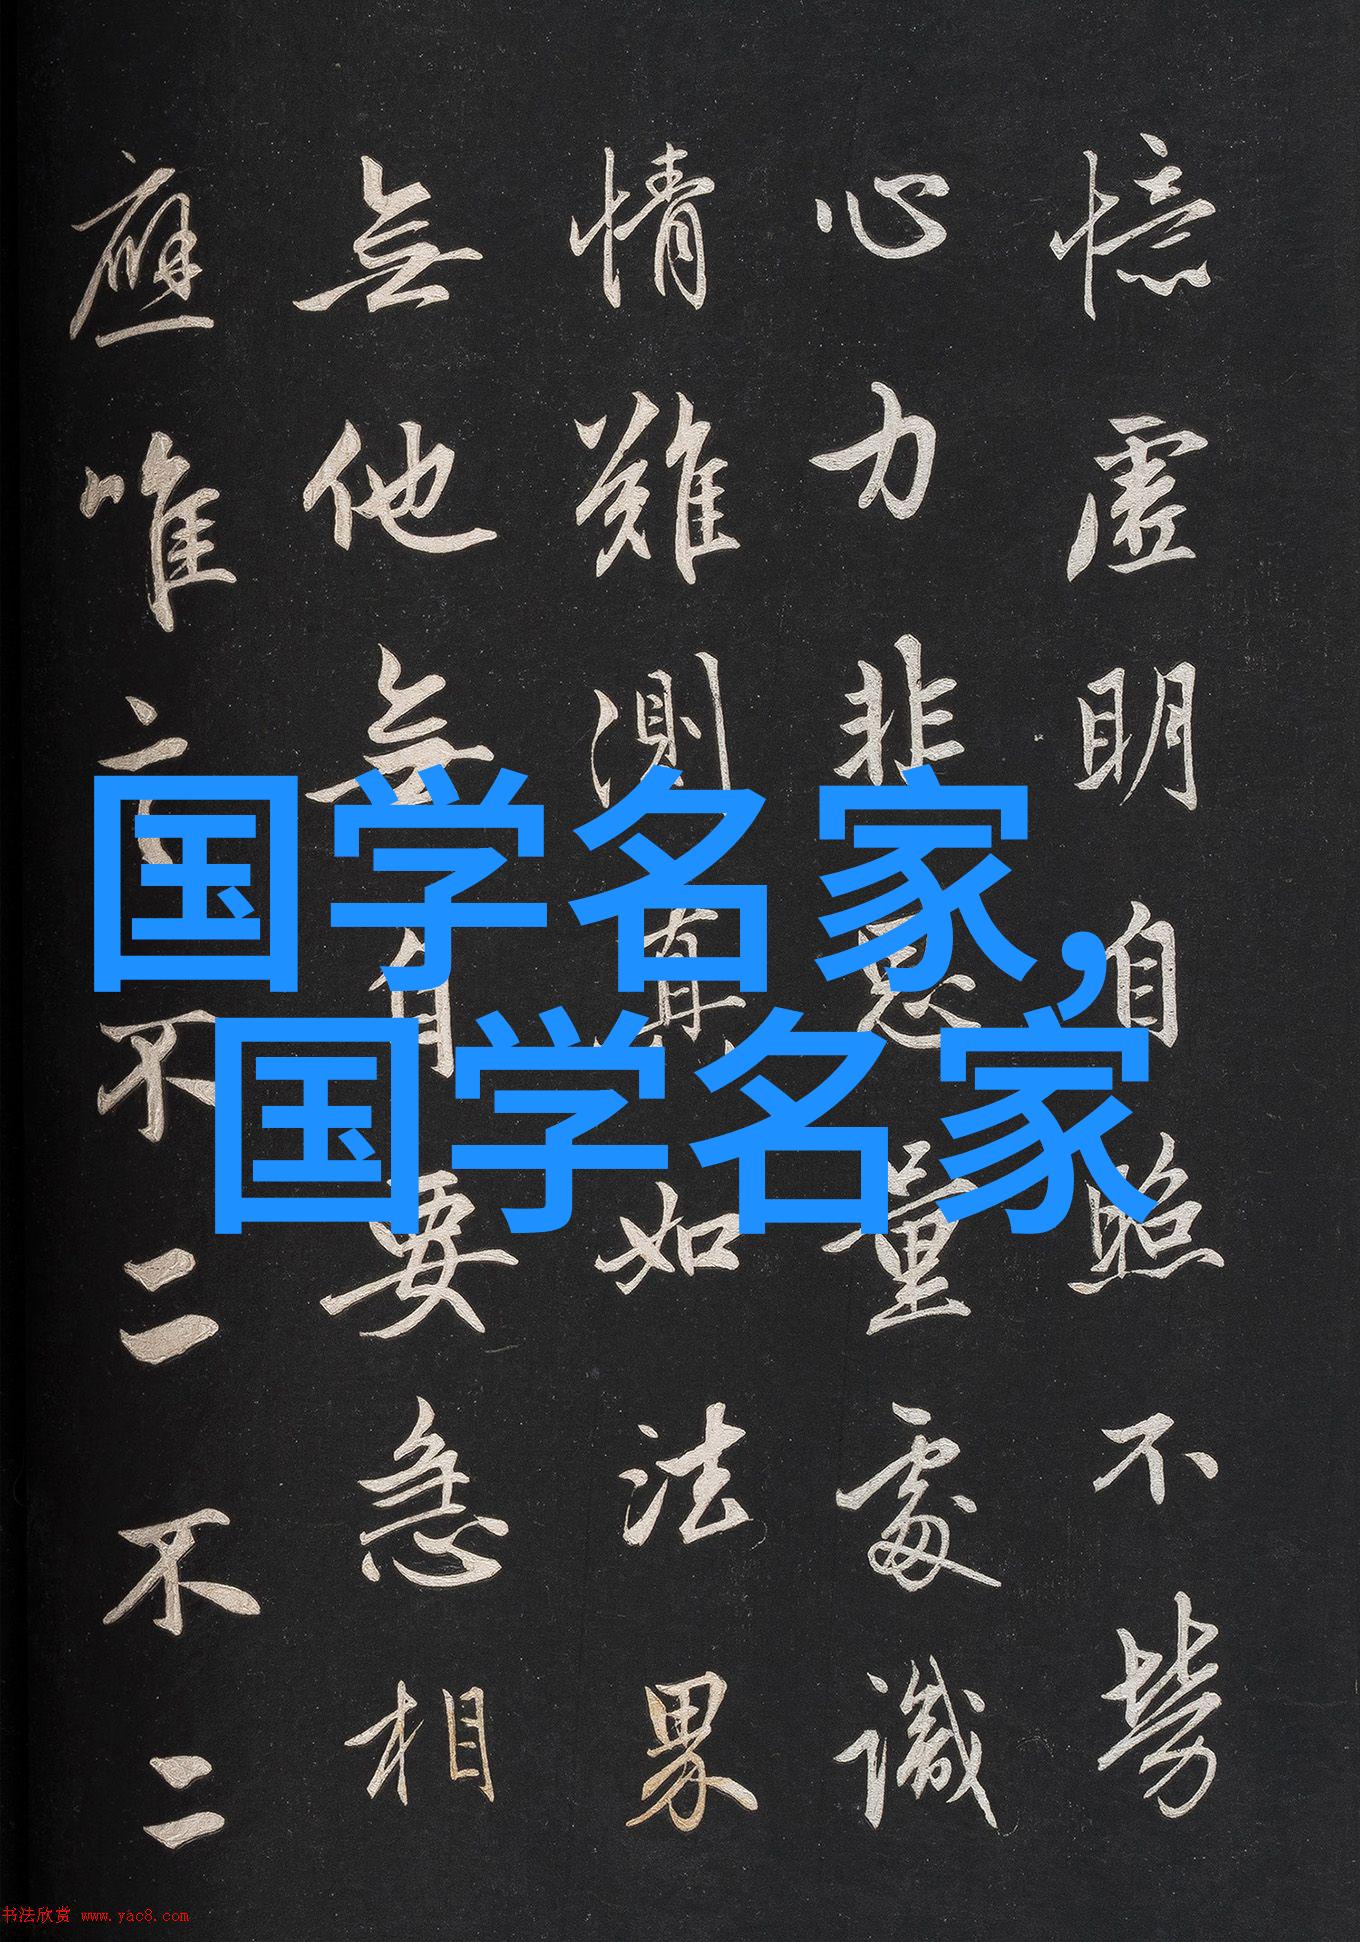 憶虛明自照不勞
心力非思量處識
情難測真如法界
無他無自要急相
應唯言不二不二
国学名家，
国学名家
书法欣赏 www.yac8.com